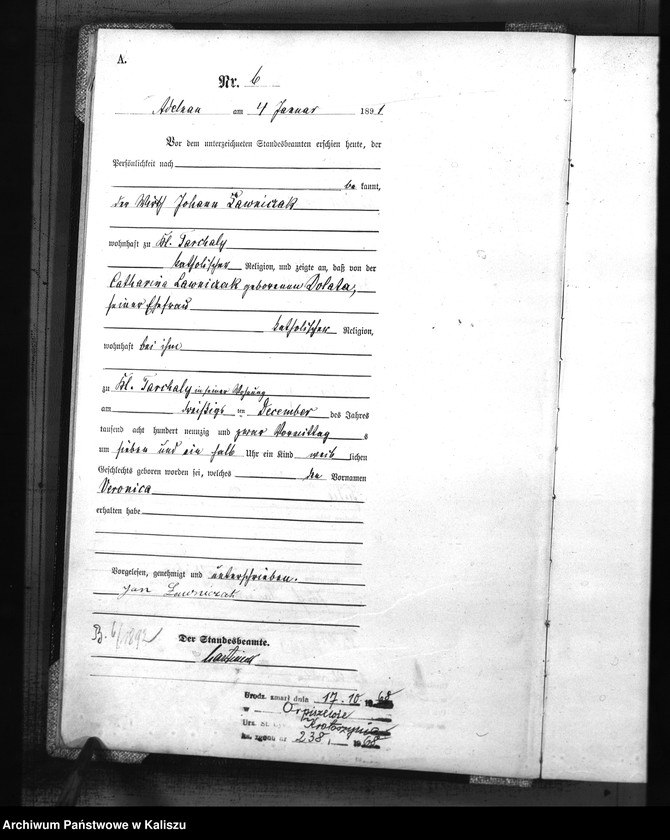 A.
Nr. 6
Adelnau am 4 Januar 1891
Vor dem unterzeichneten Standesbeamten erschien heute, der
Persönlichkeit nach
be kannt,
der Wirth Johann Ławniczak
wohnhaft zu Kl. Tarchaly
katholischer Religion, und zeigte an, daß von der
Catharina Lawniczak geborenen Dolata,
seiner Ehefrau
katholischer Religion,
wohnhaft bei ihm
zu Kl. Tarchaly in seiner Wohnung
am dreißigs ten December des Jahres
tausend acht hundert neunzig und zwar Vormittag s
um sieben und ein halb Uhr ein Kind weib lichen
Geschlechts geboren worden sei, welches den Vornamen
Veronica
erhalten habe
Vorgelesen, genehmigt und unterschrieben.
Jan Lawniczak
B. 6/1892
Der Standesbeamte.
Urodz. zmarł dnia 17.10 1968
w Orpiszewie
Urz. St. Cyw. Krotoszyn
Nr. zgonu nr 238 / 1968
Archiwum Państwowe w Kaliszu